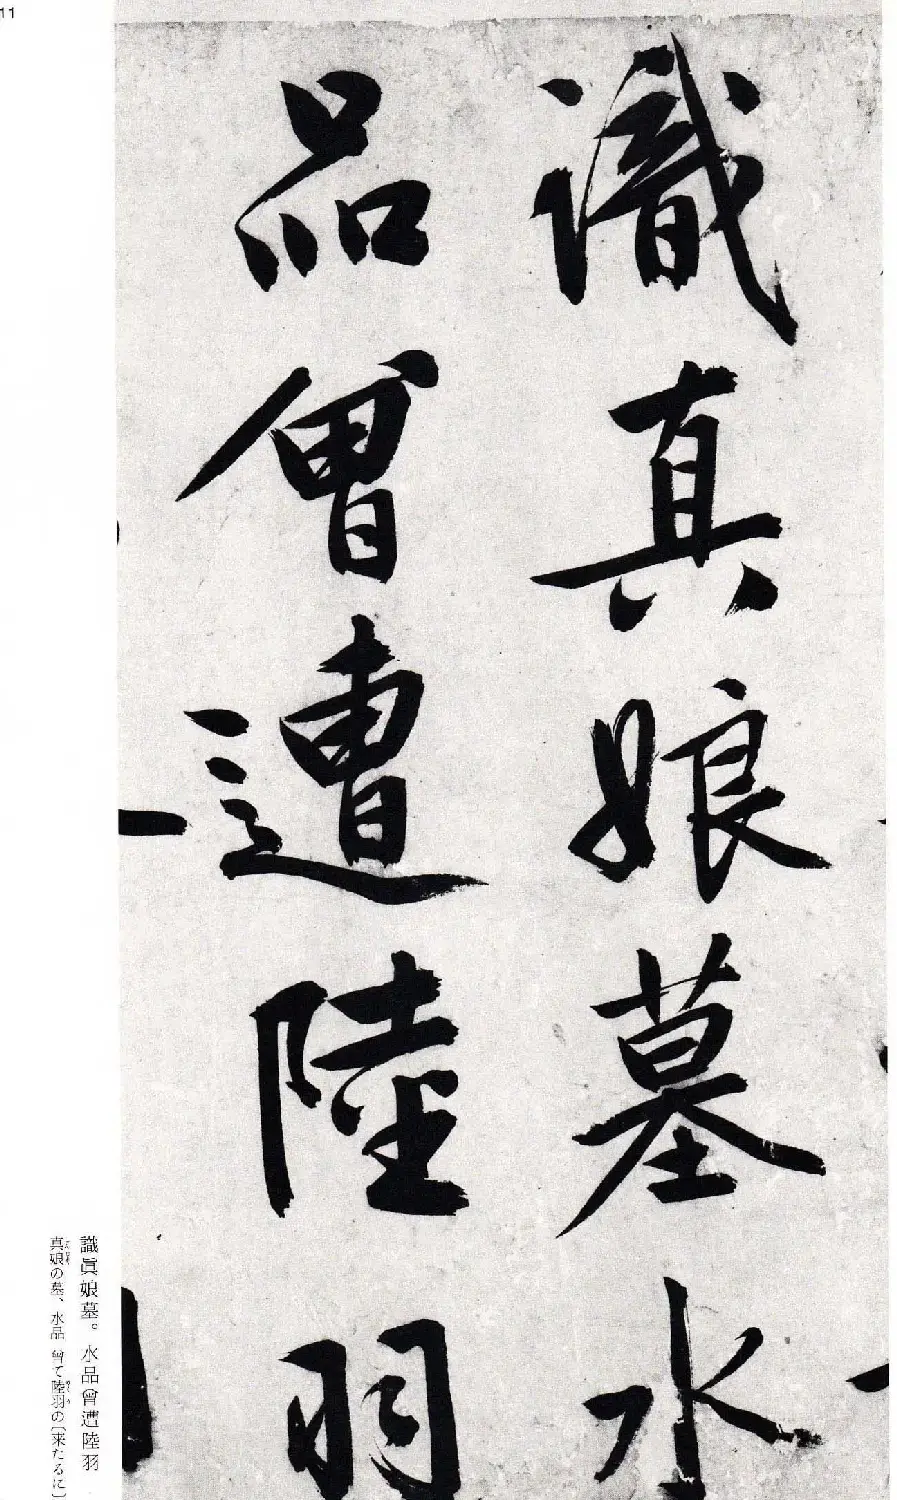 11
識真娘墓水
品曾遭陸羽
識眞娘墓。水品曾遭陸羽
真娘の墓、水品 曾て陸羽の〔来たるに〕